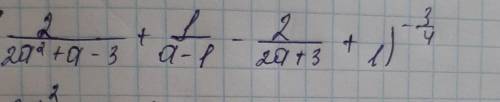 2/(2a²+a-3) + 1/(a-1) - 2/(2a+3) + 1)^(-3/4)
2